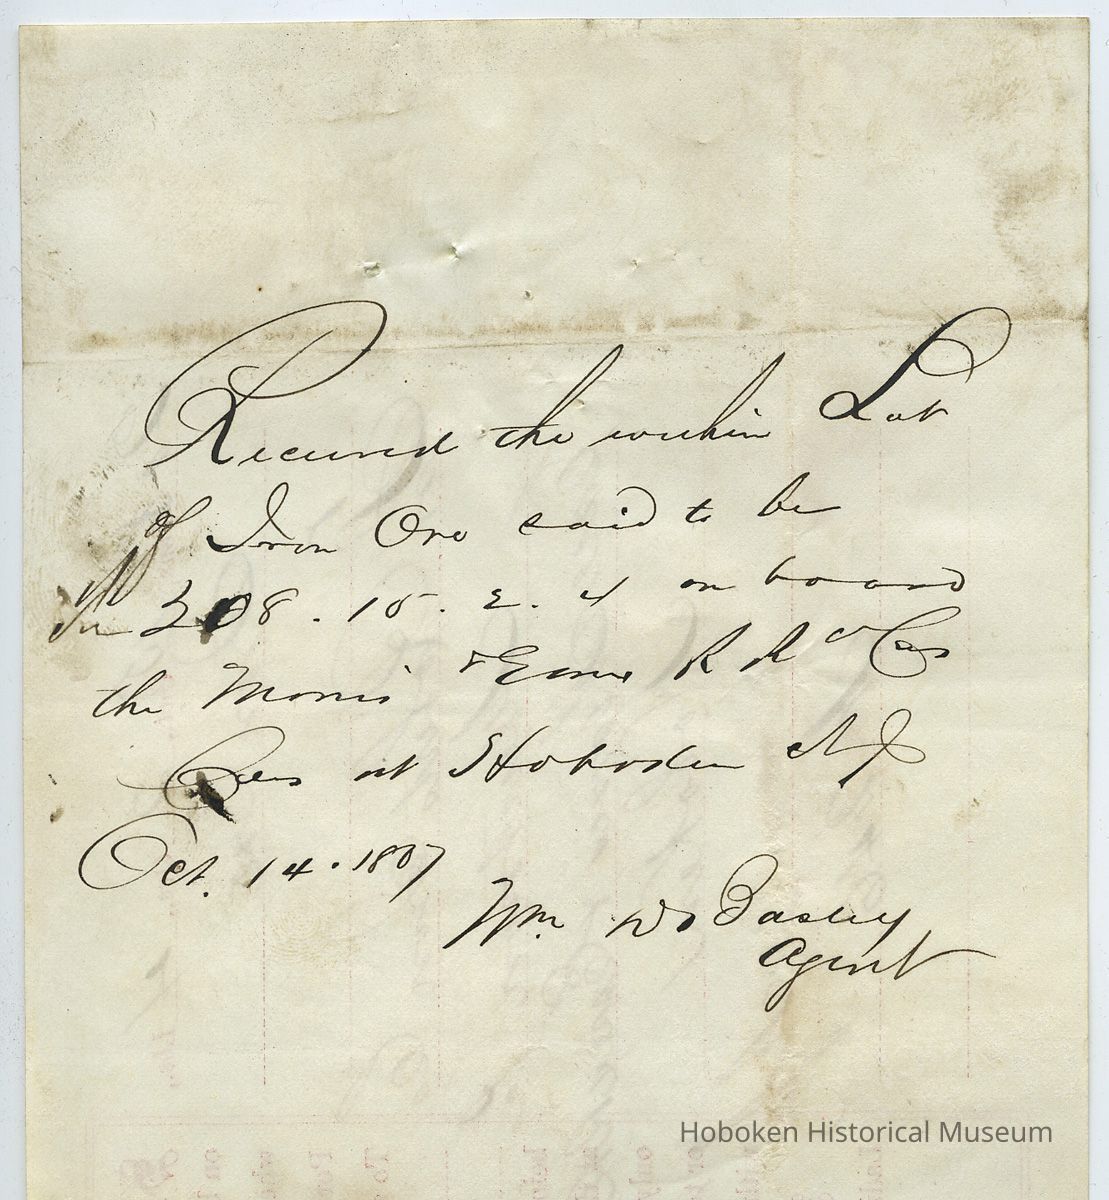 Received the within Lot
of Iron Ore said to be
308. 15. 2. 4 on board
the Morris & Essex R R Co Cars
Cars at Hoboken NJ
Oct. 14. 1867
Wm. Basley
Agent
Hoboken Historical Museum